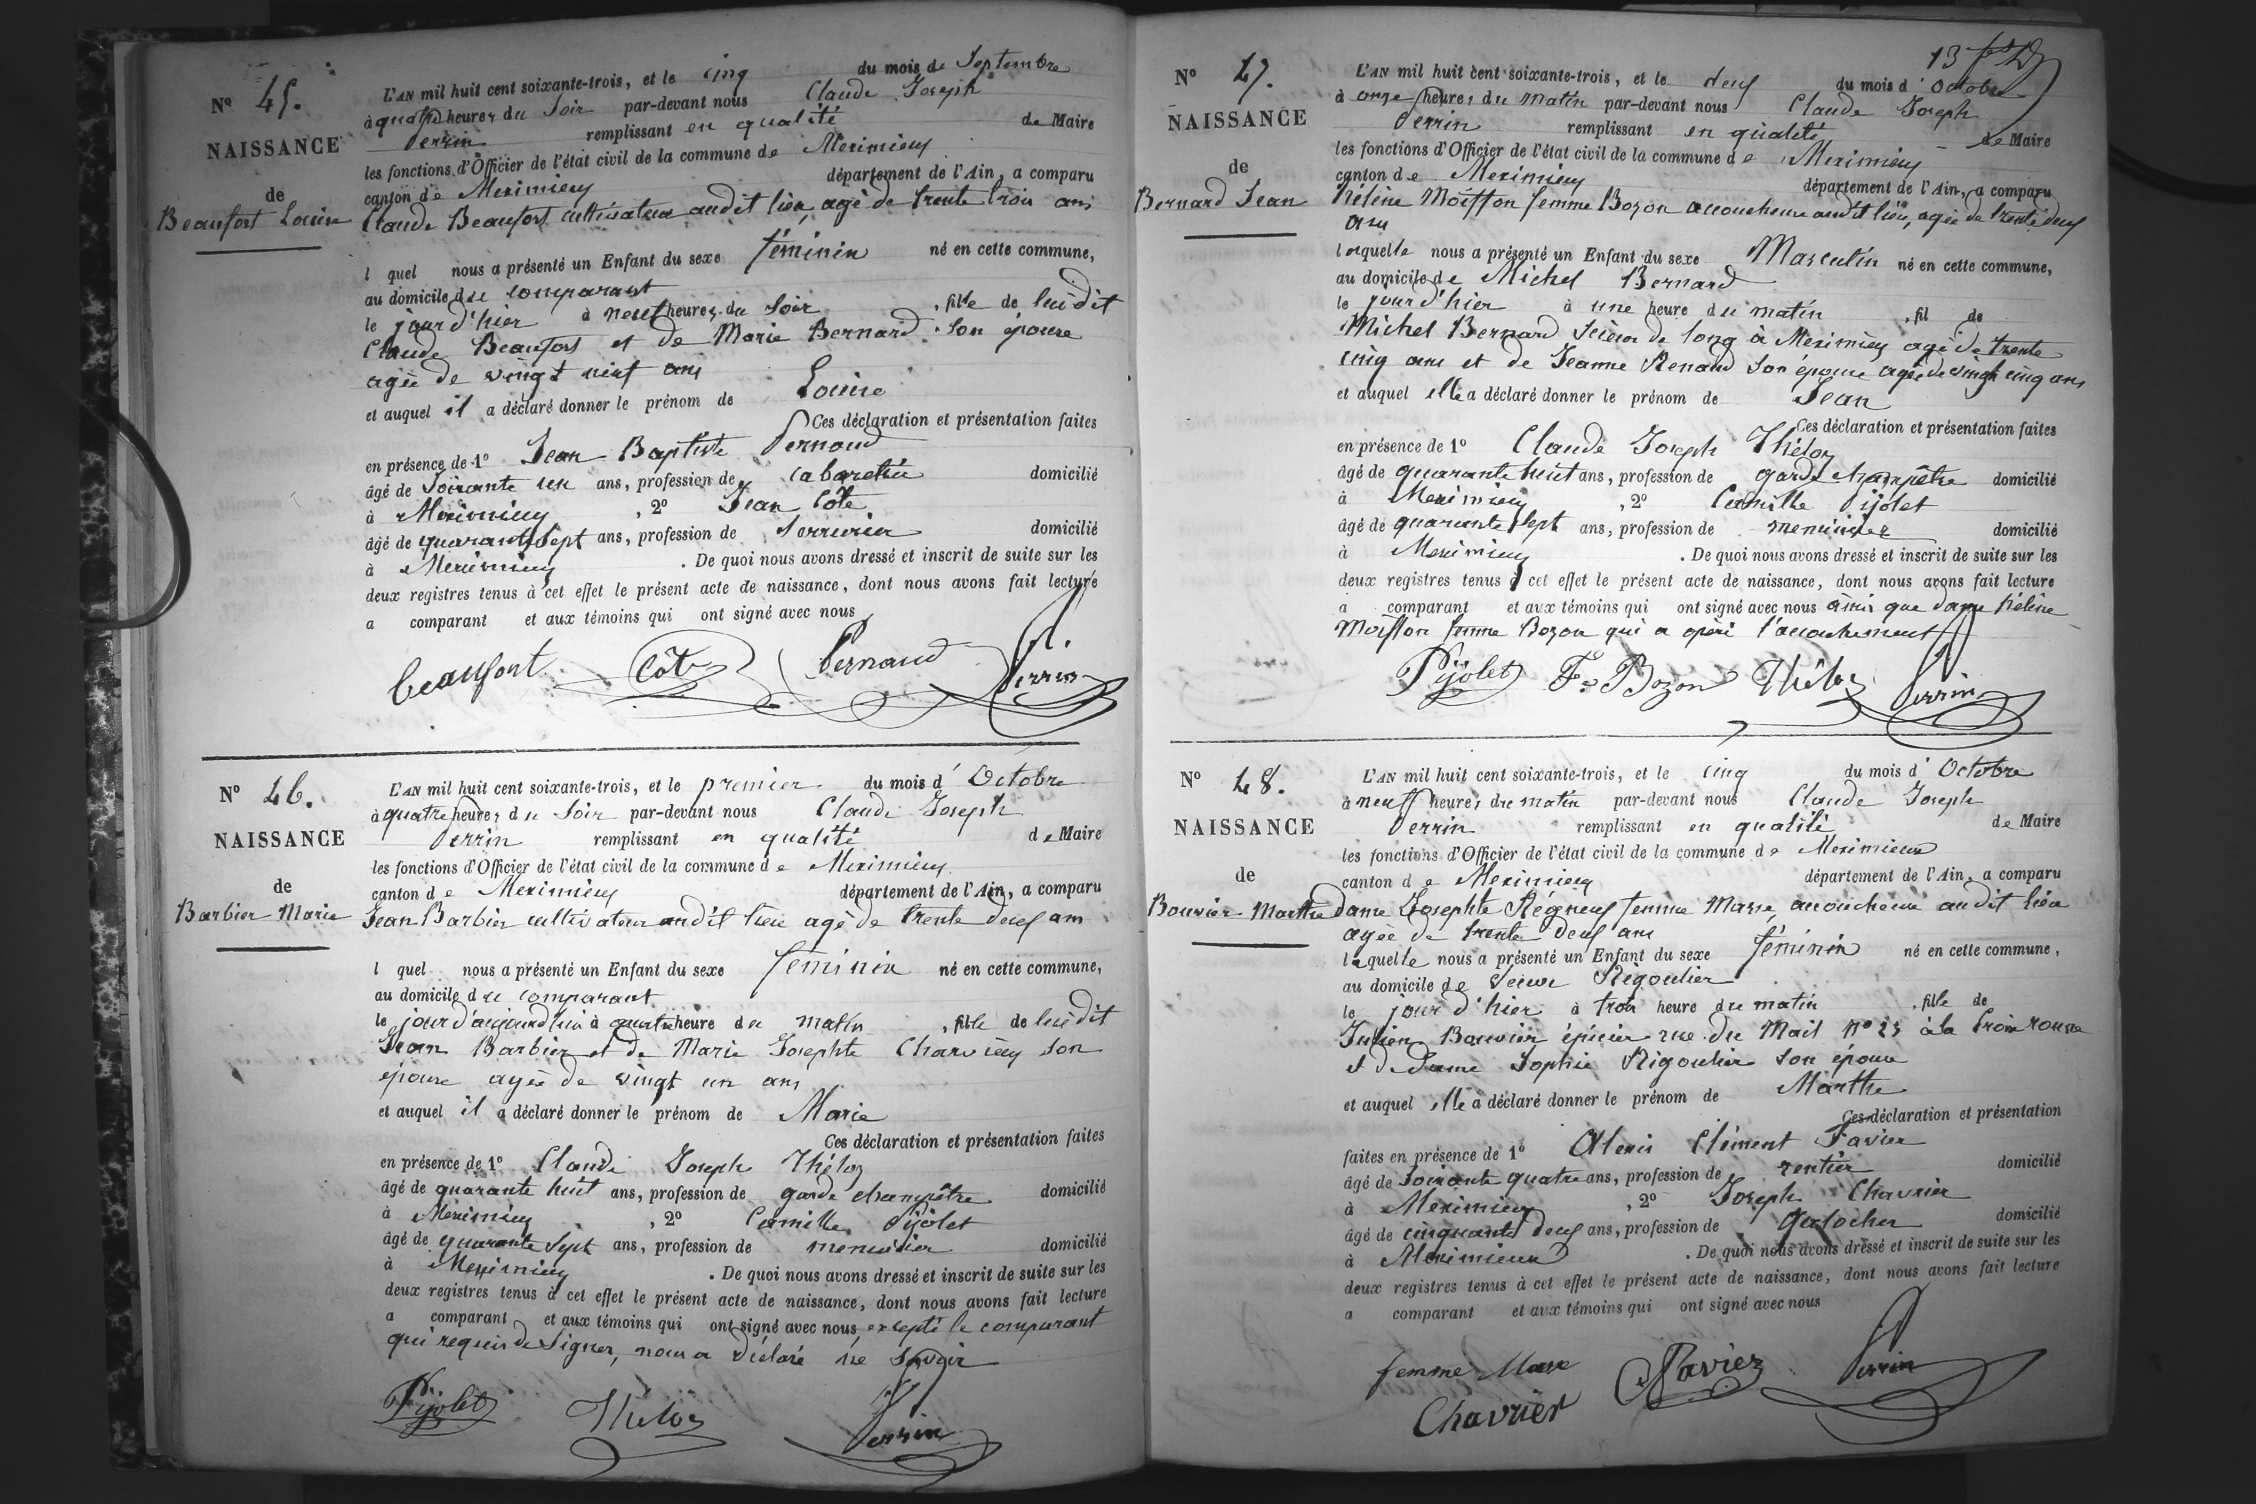 N° 45.
NAISSANCE
de
Beaufort Louise
L'AN mil huit cent soixante-trois, et le cinq du mois de Septembre
à quatre heures du Soir par-devant nous Claude Joseph
Perrin remplissant en qualité de Maire
les fonctions d'Officier de l'état civil de la commune de Meximieux
canton de Meximieux département de l'Ain, a comparu
Claude Beaufort cultivateur audit lieu, agé de trente trois ans
l quel nous a présenté un Enfant du sexe féminin né en cette commune,
au domicile du comparant
le jour d'hier à neuf heures du Soir, fille de lui dit
Claude Beaufort et de Marie Bernard son épouse
agée de vingt neuf ans
et auquel il a déclaré donner le prénom de Louise
Ces déclaration et présentation faites
en présence de 1° Jean Baptiste Pernoud
âgé de Soixante un ans, profession de cabaretier domicilié
à Meximieux, 2° Jean Côte
âgé de quarante sept ans, profession de Serrurier domicilié
à Meximieux. De quoi nous avons dressé et inscrit de suite sur les
deux registres tenus à cet effet le présent acte de naissance, dont nous avons fait lecture
a comparant et aux témoins qui ont signé avec nous
beaufort Côte Pernoud Perrin
N° 46.
NAISSANCE
de
Barbier Marie
L'AN mil huit cent soixante-trois, et le premier du mois d'Octobre
à quatre heures du Soir par-devant nous Claude Joseph
Perrin remplissant en qualité de Maire
les fonctions d'Officier de l'état civil de la commune de Meximieux
canton de Meximieux département de l'Ain, a comparu
Jean Barbier cultivateur audit lieu agé de trente deux ans
l quel nous a présenté un Enfant du sexe féminin né en cette commune,
au domicile du comparant
le jour d'aujourd'hui à quatre heure du matin, fille de lui dit
Jean Barbier et de Marie Josephte Charvieux son
épouse agée de vingt un ans
et auquel il a déclaré donner le prénom de Marie
Ces déclaration et présentation faites
en présence de 1° Claude Joseph Théloz
âgé de quarante huit ans, profession de garde champêtre domicilié
à Meximieux, 2° Camille Pijolet
âgé de quarante sept ans, profession de menuisier domicilié
à Meximieux. De quoi nous avons dressé et inscrit de suite sur les
deux registres tenus à cet effet le présent acte de naissance, dont nous avons fait lecture
a comparant et aux témoins qui ont signé avec nous, excepté le comparant
qui requis de Signer, nous a déclaré ne savoir
Pijolet Théloz Perrin
13
N° 47.
NAISSANCE
de
Bernard Jean
L'AN mil huit cent soixante-trois, et le deux du mois d'Octobre
à onze heures du matin par-devant nous Claude Joseph
Perrin remplissant en qualité de Maire
les fonctions d'Officier de l'état civil de la commune de Meximieux
canton de Meximieux département de l'Ain, a comparu
hélène Moiffon femme Bozon accoucheuse audit lieu, agée de trente deux
ans
laquelle nous a présenté un Enfant du sexe Masculin né en cette commune,
au domicile de Michel Bernard
le jour d'hier à une heure du matin, fil de
Michel Bernard Scieur de long à Meximieux agé de trente
cinq ans et de Jeanne Renaud son épouse agée de vingt cinq ans
et auquel elle a déclaré donner le prénom de Jean
Ces déclaration et présentation faites
en présence de 1° Claude Joseph Théloz
âgé de quarante huit ans, profession de garde champêtre domicilié
à Meximieux, 2° Camille Pijolet
âgé de quarante sept ans, profession de menuisier domicilié
à Meximieux. De quoi nous avons dressé et inscrit de suite sur les
deux registres tenus à cet effet le présent acte de naissance, dont nous avons fait lecture
a comparant et aux témoins qui ont signé avec nous ainsi que dame hélène
Moiffon femme Bozon qui a opéré l'accouchement
Pijolet Fe Bozon Théloz Perrin
N° 48.
NAISSANCE
de
Bouvier Marthe
L'AN mil huit cent soixante-trois, et le cinq du mois d'Octobre
à neuf heures du matin par-devant nous Claude Joseph
Perrin remplissant en qualité de Maire
les fonctions d'Officier de l'état civil de la commune de Meximieux
canton de Meximieux département de l'Ain, a comparu
dame Josephte Régneux femme Masse, accoucheuse audit lieu
agée de trente deux ans
laquelle nous a présenté un Enfant du sexe féminin né en cette commune,
au domicile de Sieur Rigoulier
le jour d'hier à trois heure du matin, fille de
Julien Bouvier épicier rue du Mail n° 25 à la Croix rousse
et de Dame Sophie Rigoulier son épouse
et auquel elle a déclaré donner le prénom de Marthe
Ces déclaration et présentation
faites en présence de 1° Alexis Clément Favier
âgé de Soixante quatre ans, profession de rentier domicilié
à Meximieux, 2° Joseph Chavrier
âgé de cinquante deux ans, profession de galocher domicilié
à Meximieux. De quoi nous avons dressé et inscrit de suite sur les
deux registres tenus à cet effet le présent acte de naissance, dont nous avons fait lecture
a comparant et aux témoins qui ont signé avec nous
femme Masse Favier Perrin
Chavrier